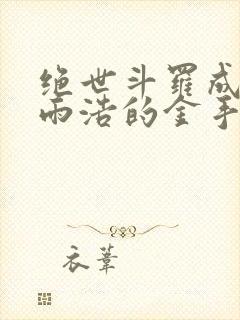 绝世斗罗成
雨浩的金手
衣苇